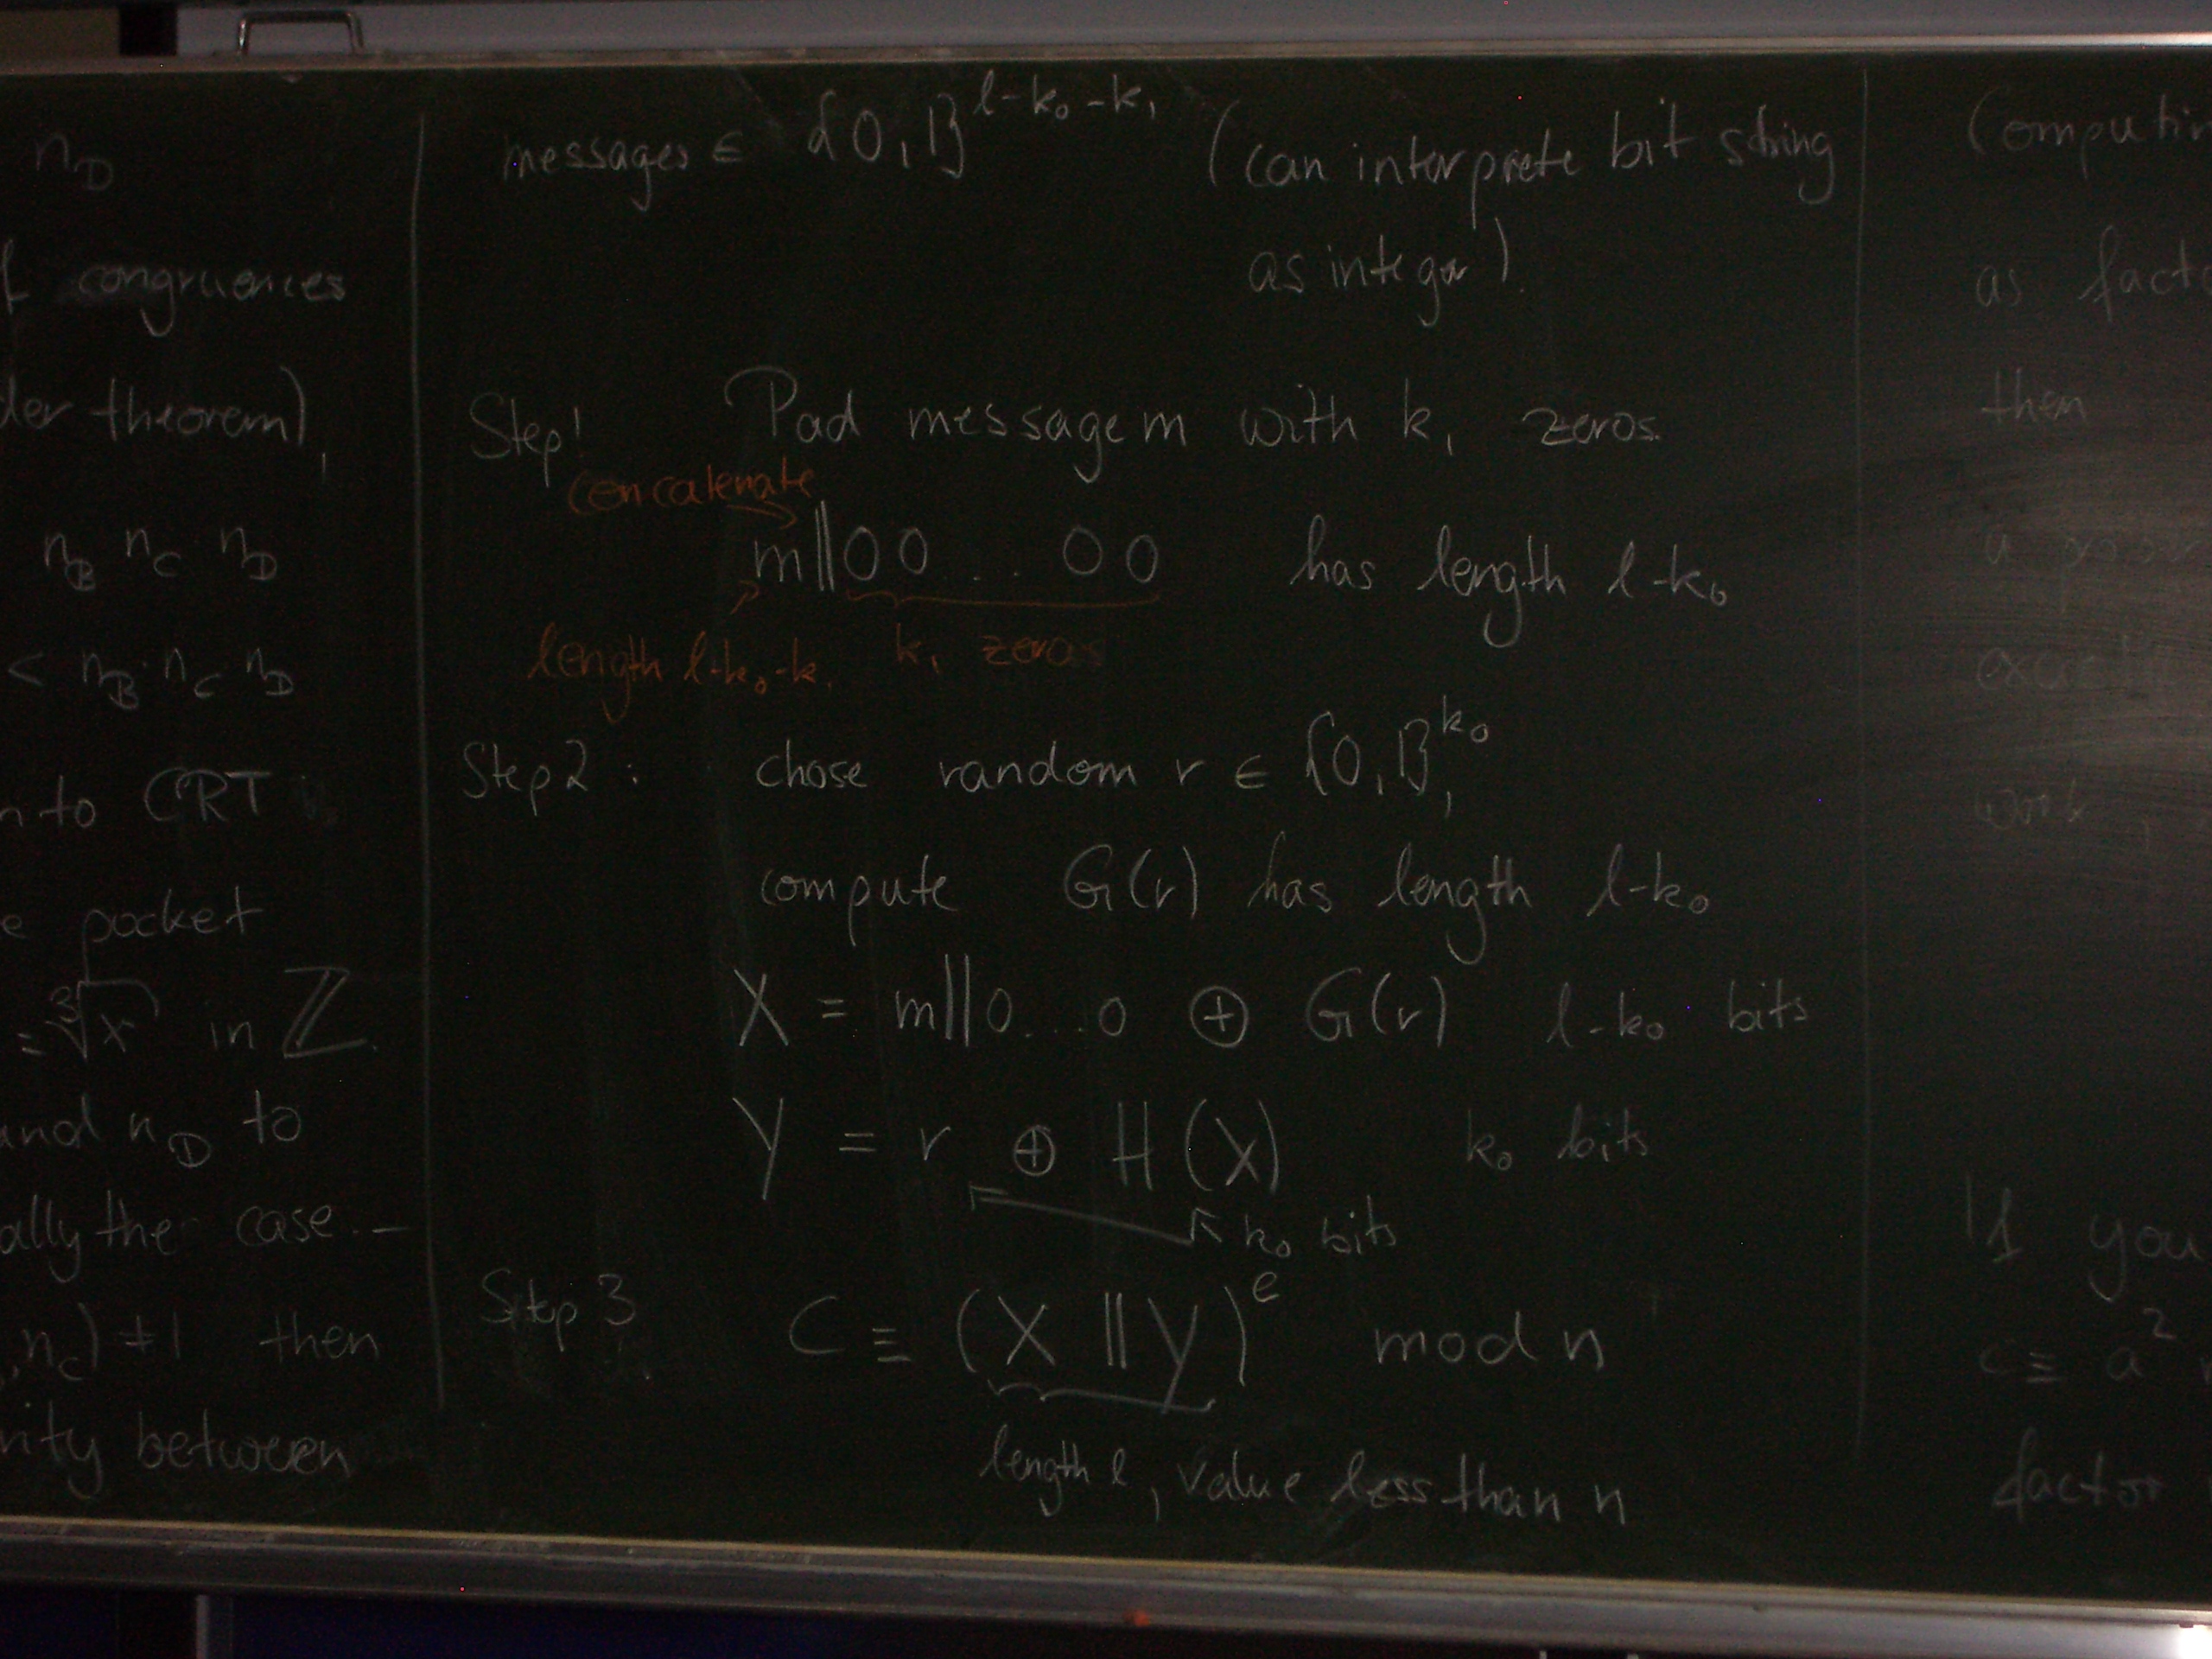 n_D
congruences
der theorem),
n_B n_C n_D
< n_B · n_C n_D
to CRT
pocket
= ∛x in ℤ.
and n_D to
ally the case. –
, n_C) ≠ 1 then
rity between
messages ∈ {0,1}^{l-k_0-k_1} (can interprete bit string
as integer).
Step 1 Pad message m with k_1 zeros.
concatenate
m||00 . . . 00 has length l-k_0
length l-k_0-k_1 k_1 zeros
Step 2 : chose random r ∈ {0,1}^{k_0},
compute G(r) has length l-k_0
X = m||0...0 ⊕ G(r) l-k_0 bits
Y = r ⊕ H(X) k_0 bits
k_0 bits
Step 3 C ≡ (X || Y)^e mod n
length l, value less than n
as
then
work,
If you
c ≡ a^2
factor